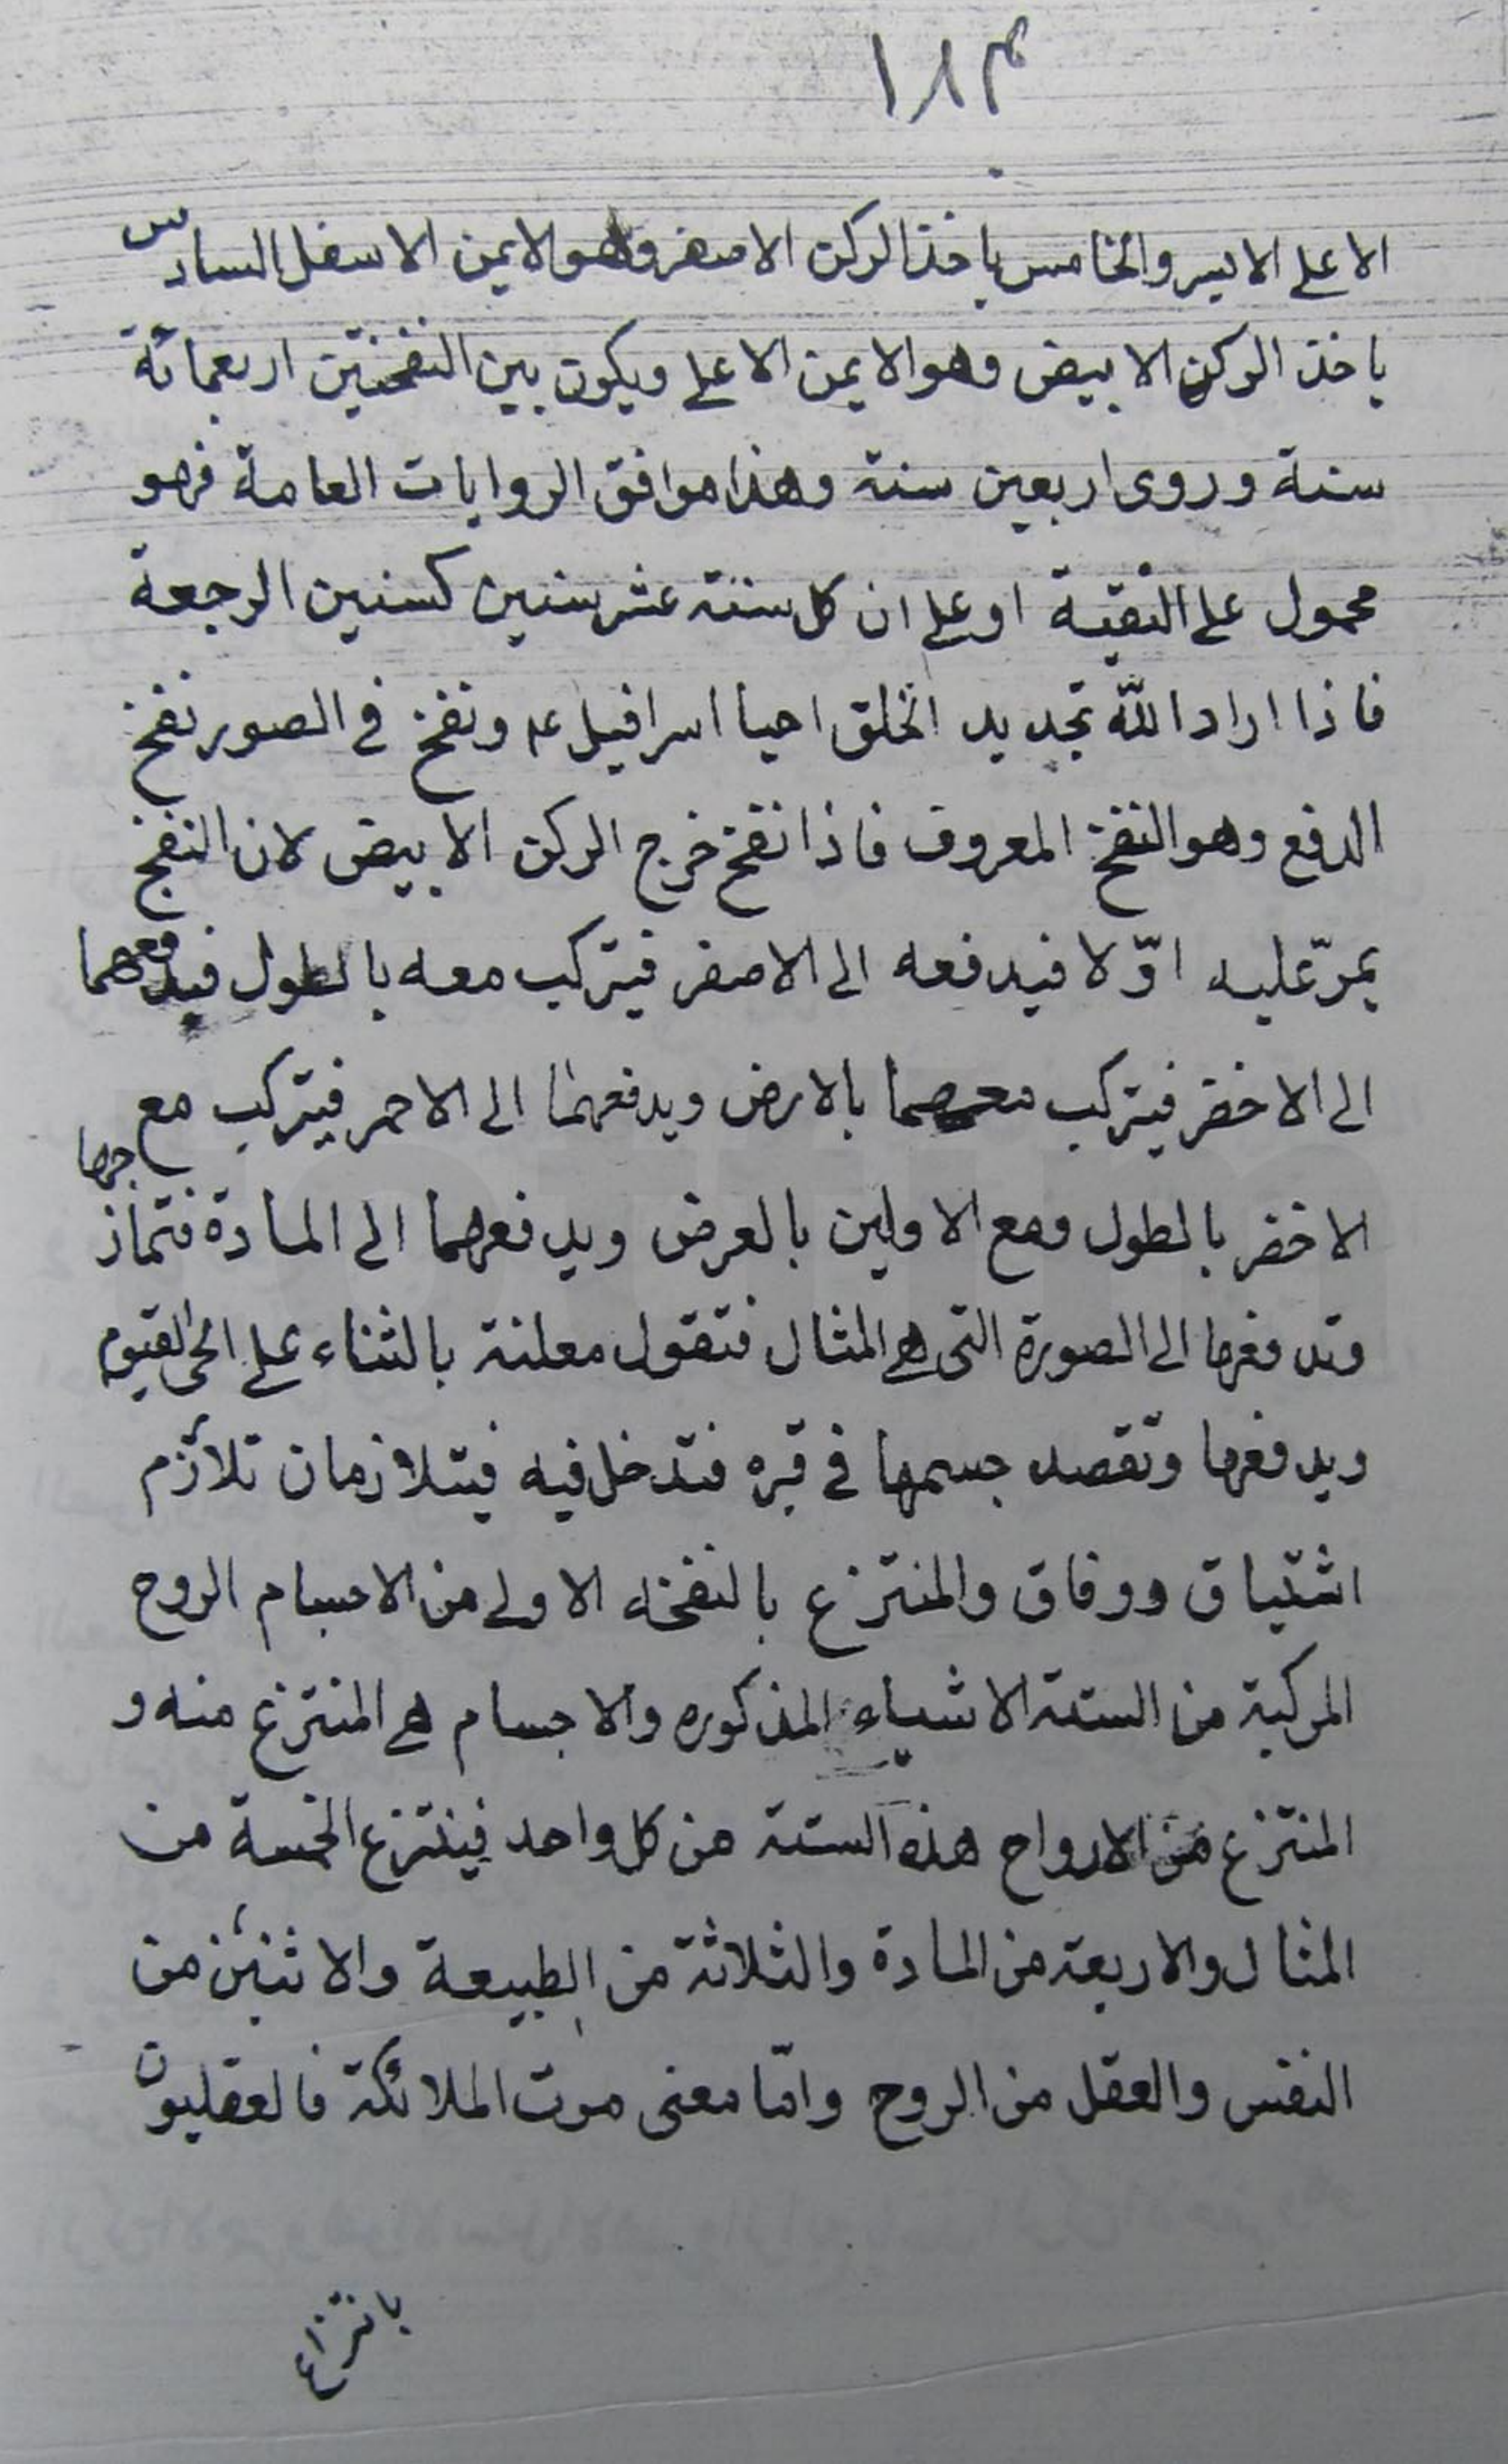 ١٨٣
الاعلى الايسر والخامس ياخذ الركن الاصفر وهو الايمن الاسفل السادس
ياخذ الركن الابيض وهو الايمن الاعلى ويكون بين النفختين اربعمائة
سنة وروى اربعين سنة وهذا موافق الروايات العامة فهو
محمول على التقية او على ان كل سنة عشر سنين كسنين الرجعة
فاذا اراد الله تجديد الخلق احيا اسرافيل ع ونفخ في الصور نفخ
الدفع وهو النفخ المعروف فاذا نفخ خرج الركن الابيض لان النفخ
يمرّ عليه اوّلا فيدفعه الى الاصفر فيتركب معه بالطول فيدفعهما
الى الاخضر فيتركب معهما بالارض ويدفعهما الى الاحمر فيتركب مع
الاخضر بالطول ومع الاولين بالعرض ويدفعهما الى المادة فتمازجها
وتدفعها الى الصورة التى هي المثال فتقول معلنة بالثناء على الحى القيوم
ويدفعها وتقصد جسمها في قبره فتدخل فيه فيتلازمان تلازم
اشتياق ووفاق والمنتزع بالنفخه الاولى من الاجسام الروح
المركبة من الستة الاشياء المذكوره والاجسام هي المنتزع منه و
المنتزع من الارواح هذه الستة من كل واحد فينتزع الخمسة من
المثال والاربعة من المادة والثلاثة من الطبيعة والاثنين من
النفس والعقل من الروح وامّا معنى موت الملائكة فالعقليون
بانتزاع